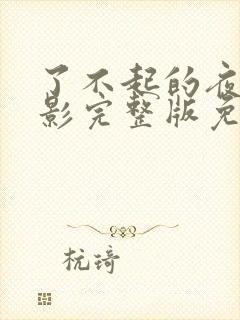 了不起的夜
影完整版免
杭琦